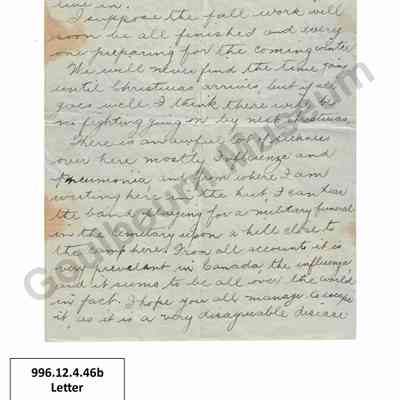 live in.
I suppose the fall work will
soon be all finished and every
one preparing for the coming winter
We will never find the time going
until Christmas arrives, but if all
goes well I think there will be
no fighting going on by next christmas.
There is an awful lot of sickness
over here mostly Influenza and
Pneumonia and from where I am
writing here in the hut, I can hear
the band playing for a military funeral
in the Cemetary upon a hill close to
the camp here. From all accounts it is
very prevelant in Canada, the influenza
and it seems to be all over the world
in fact. I hope you all manage to escape
it, as it is a very disagreeable disease
Goulbourn Museum
996.12.4.46b
Letter